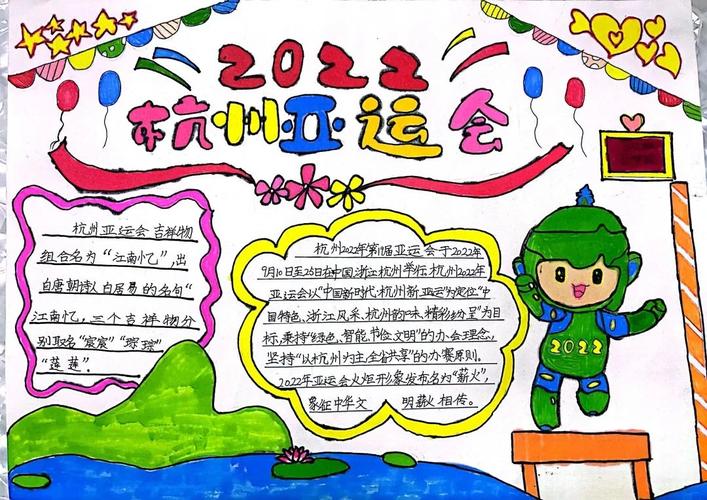 2022
杭州亚运会
杭州亚运会吉祥物
组合名为“江南忆”，出
自唐朝诗人白居易的名句“
江南忆，三个吉祥物分
别取名“宸宸”“琮琮”
“莲莲”.
杭州2022年第19届亚运会于2022年
9月10日至25日在中国浙江杭州举行.杭州2022年
亚运会以“中国新时代·杭州新亚运”为定位“中
国特色、浙江风采、杭州韵味、精彩纷呈”为目
标，秉持“绿色、智能、节俭、文明”的办会理念，
坚持“以杭州为主，全省共享”的办赛原则。
2022年亚运会火炬形象发布名为“薪火”，
象征中华文 明薪火相传。
2022